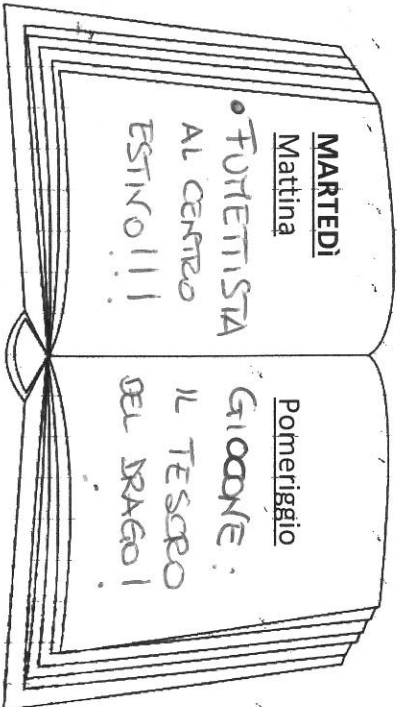 MARTEDÌ
Mattina
• FUMETTISTA
AL CENTRO
ESTIVO!!!
Pomeriggio
GIOCONE:
IL TESORO
DEL DRAGO!